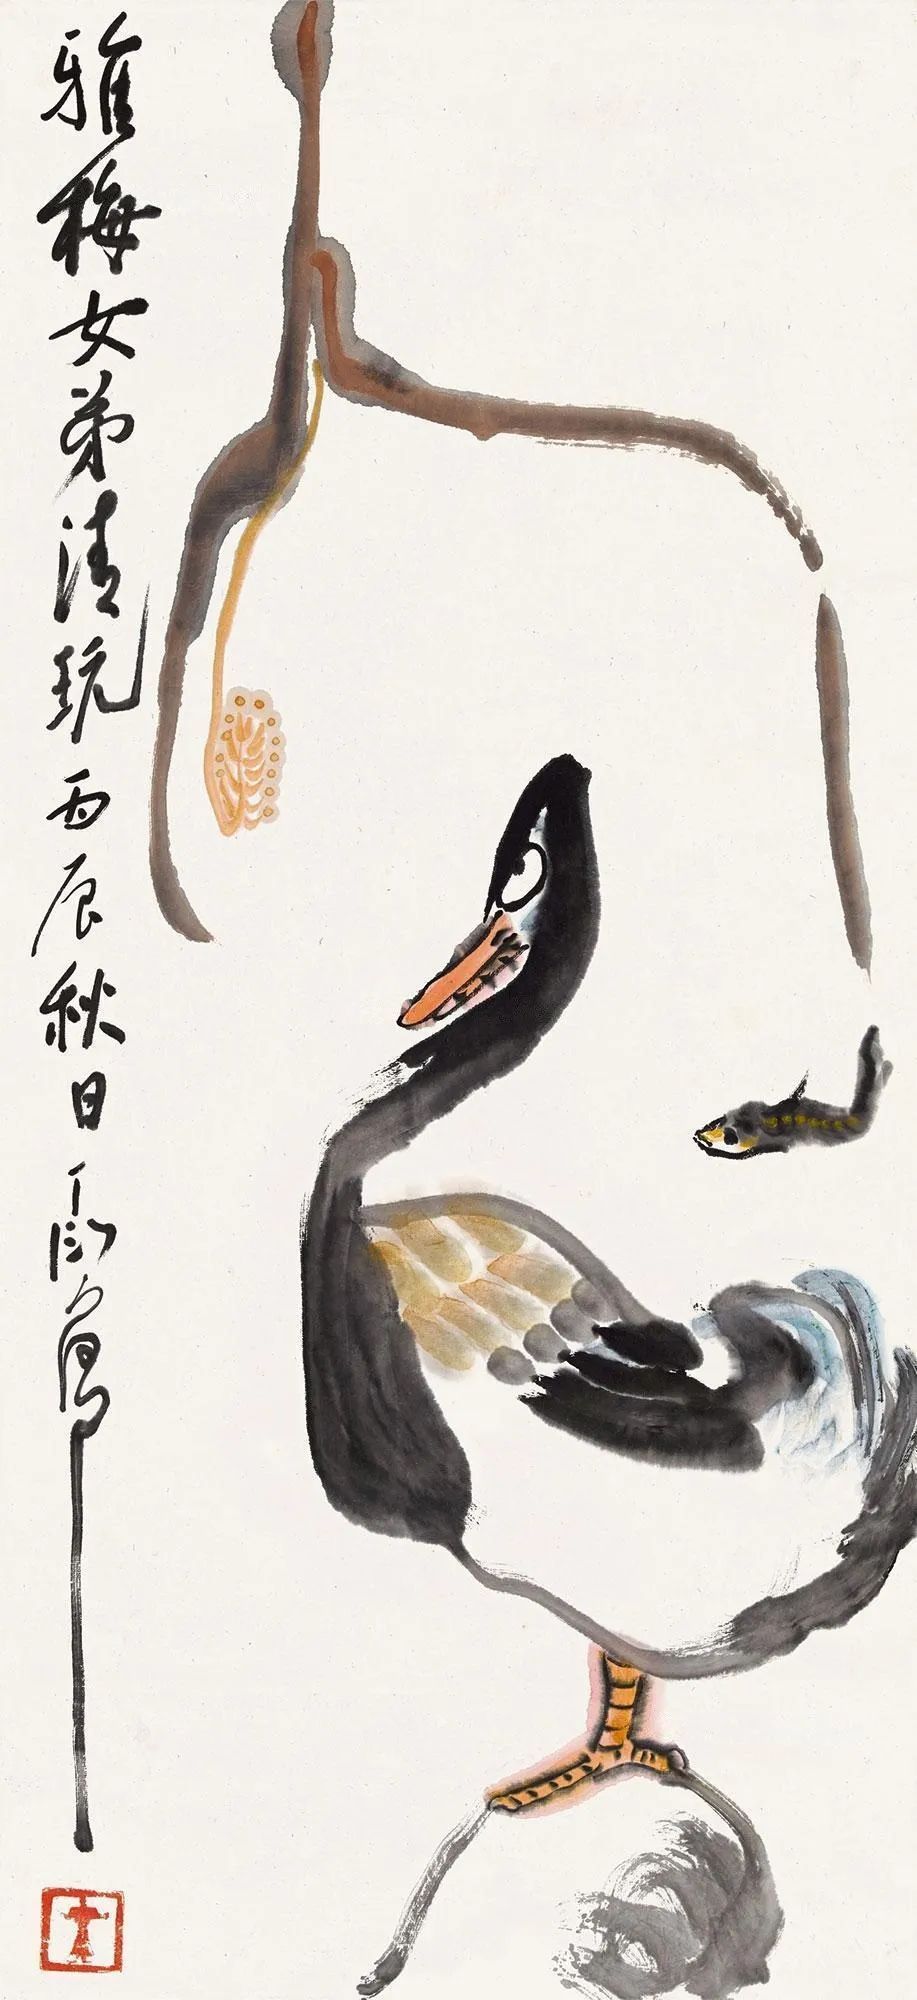 雅梅女弟清玩丙辰秋日丁衍庸